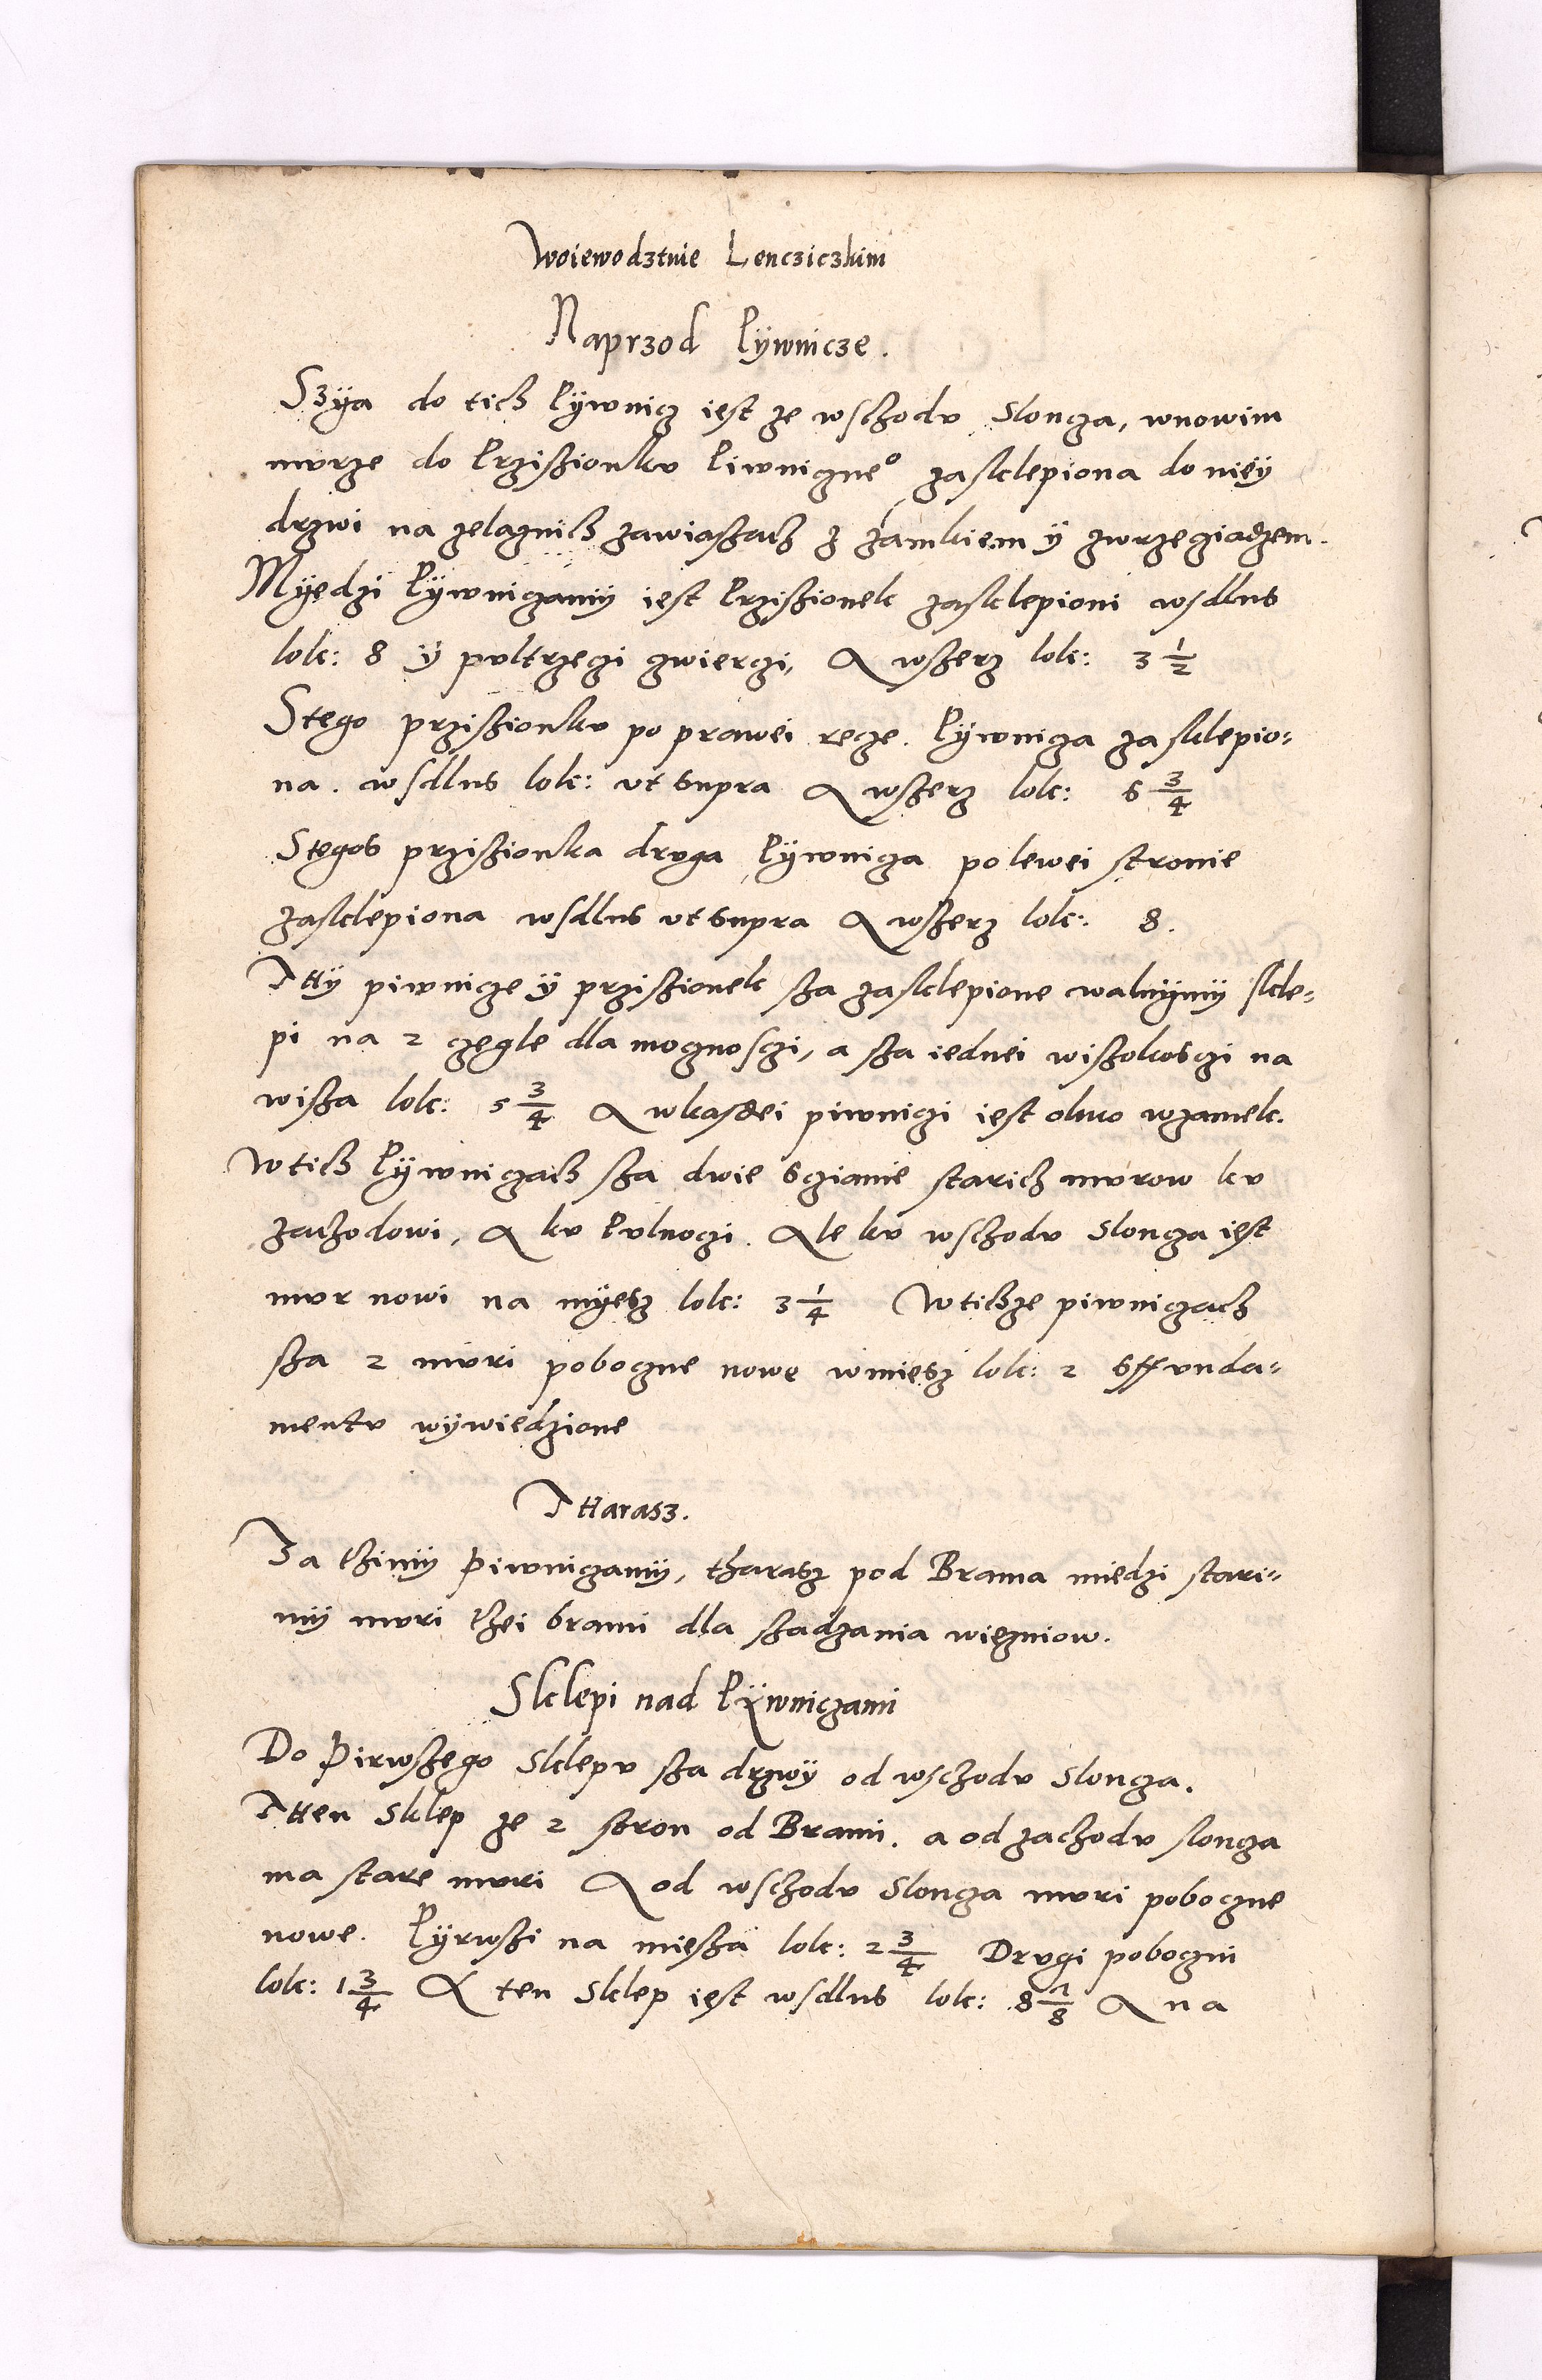 Woiewodztwie Lencziczkim
Naprzod Pÿwnicze.
Szÿa do tich Pÿwnicz iest ze wschodv Sloncza, wnowim
mvrze do Przisionkv Piwniczneº zasklepiona do nieÿ
drzwi na zelaznich zawiaszach z zamkiem ÿ zwrzecziadzem.
Mÿedzi Pÿwniczamÿ iest Przisionek zasklepioni wsdlus
lok: 8 ÿ pvltrzeczi czwierczi, A wszerz lok: 3 1/2
Stego przisionkv po prawei recze. Pÿwnicza zasklepio=
na. wsdlus lok: vt supra A wszerz lok: 6 3/4
Stegos przisionka drvga Pÿwnicza po lewei stronie
zasklepiona wsdlus vt supra A wszerz lok: 8.
Ttÿ piwnicze ÿ przisionek sza zasklepione walnÿmÿ skle=
pi na 2 czegle dla mocznosczi, a sza iednei wiszokosczi na
wisza lok: 5 3/4 A wkasdei piwniczi iest okno wzamek.
Wtich Pÿwniczach sza dwie scziamie starich mvrow kv
zachodowi, A kv Pvlnoczi. Ale kv wschodv Sloncza iest
mvr nowi na mÿesz lok: 3 1/4 Wtichze piwniczach
sza 2 mvri poboczne nowe wmiesz lok: 2 sffvnda=
mentv wÿwiedzione
Ttarasz.
Za thimÿ Piwniczamÿ, tharasz pod Brama miedzi stari=
mÿ mvri thei brami dla szadzania wiezniow.
Sklepi nad Pÿwniczami
Do Pirwszego Sklepv sza drzwÿ od wschodv Sloncza.
Tten Sklep ze 2 stron od Brami. a od zachodv slonza
ma stare mvri A od wschodv Sloncza mvri poboczne
nowe. Pÿrwszi na miesza lok: 2 3/4 Drvgi poboczni
lok: 1 3/4 A ten Sklep iest wsdlus lok: 8 1/8 A na